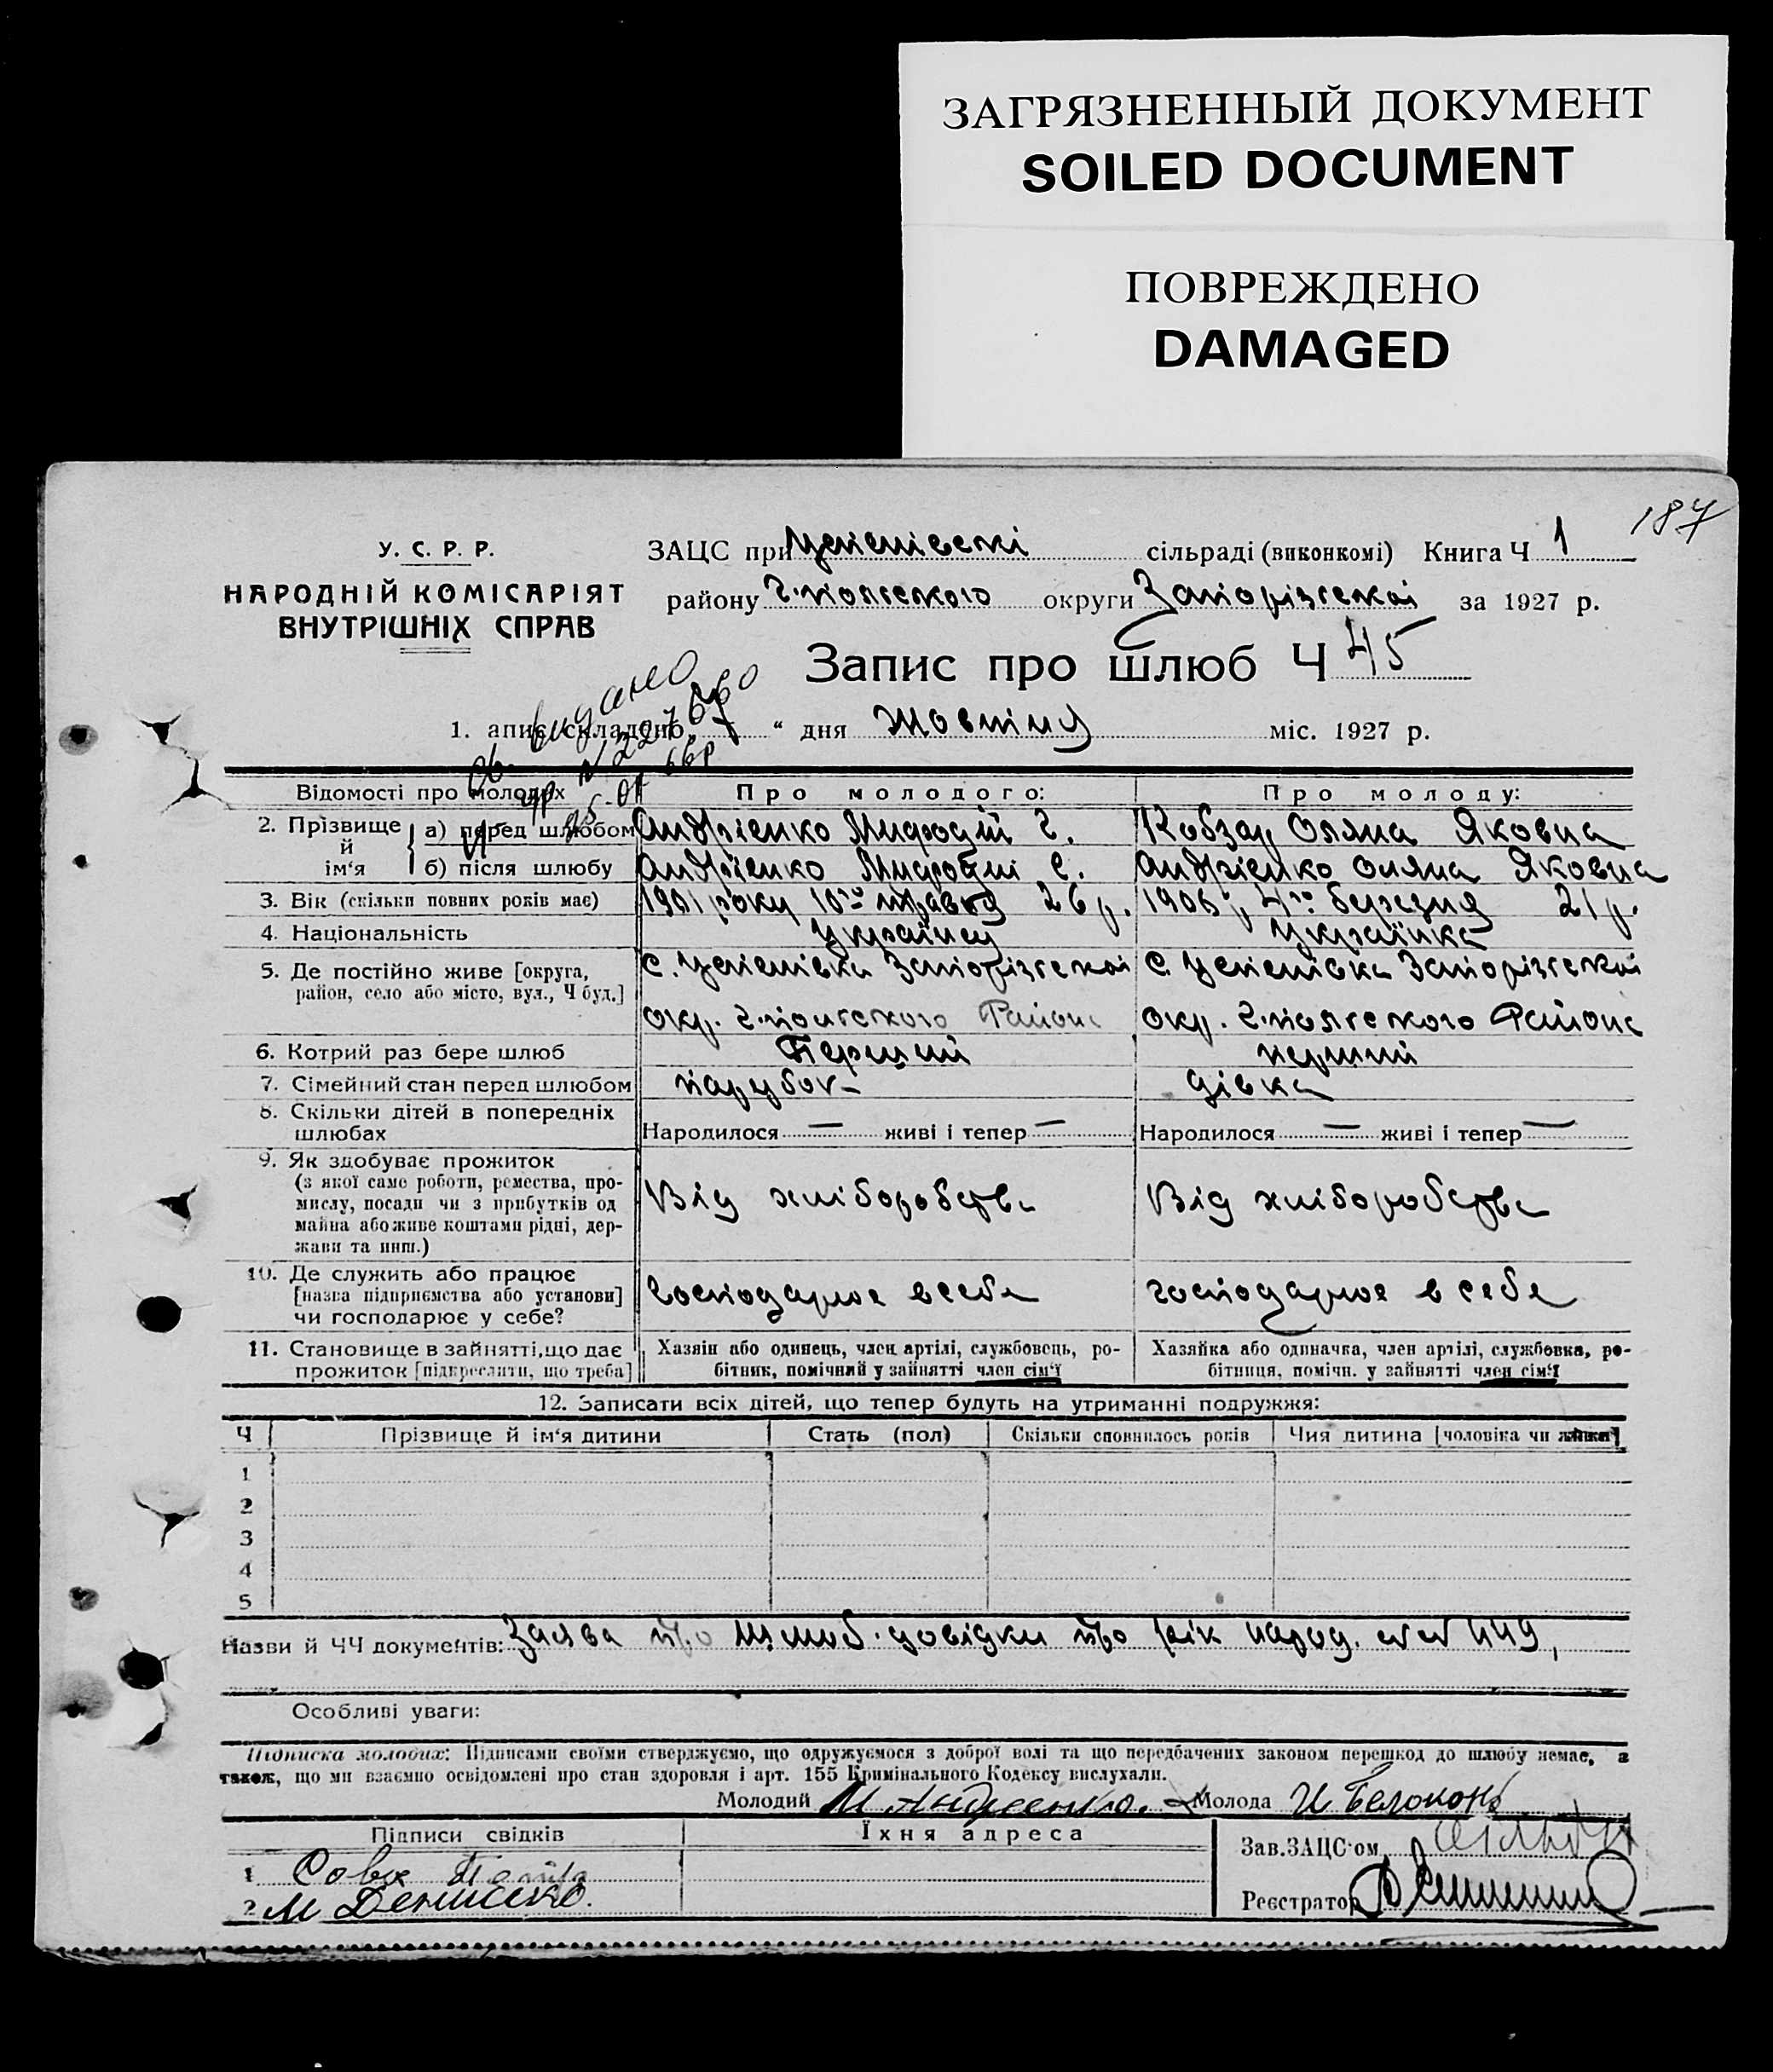 ЗАГРЯЗНЕННЫЙ ДОКУМЕНТ
SOILED DOCUMENT
ПОВРЕЖДЕНО
DAMAGED
187
У. С. Р. Р.
НАРОДНІЙ КОМІСАРІЯТ
ВНУТРІШНІХ СПРАВ
ЗАЦС при Успенівські сільраді (виконкомі) Книга Ч 1
району Г.Польского округи Запорізськоі за 1927 р.
Запис про шлюб Ч 45
видано
1. апис складено 7 “ дня Жовтня міс. 1927 р.
Відомості про молодих
Про молодого:
Про молоду:
2. Прізвище й ім‘я
а) перед шлюбом Андрієнко Мифодій Кобзар Оляна Яковна
б) після шлюбу Андрієнко Мифодій Андрієнко Оляна Яковна
3. Вік (скільки повних років має) 1901 року 10го травня 26 р. 1906 р. 4го березня 21 р.
4. Національність Українец Українка
5. Де постійно живе [округа, район, село або місто, вул., Ч буд.]
С. Успенівка Запорізськоі окр. Г.Польского Району
С. Успенівка Запорізськоі окр. Г.Польского Району
6. Котрий раз бере шлюб Перший перший
7. Сімейний стан перед шлюбом парубок дівка
8. Скільки дітей в попередніх шлюбах
Народилося — живі і тепер — Народилося — живі і тепер —
9. Як здобуває прожиток
(з якої саме роботи, ремества, про-
мислу, посади чи з прибутків од
майна або живе коштами рідні, дер-
жави та инш.)
Від хліборобства Від хліборобства
10. Де служить або працює
[назва підприємства або установи]
чи господарює у себе?
Господарює в себе господарює в себе
11. Становище в зайнятті, що дає
прожиток [підкреслити, що треба]
Хазяїн або одинець, член артілі, службовець, ро-
бітник, помічний у зайнятті член сім‘ї
Хазяйка або одиначка, член артілі, службовка, ро-
бітниця, помічн. у зайнятті член сім‘ї
12. Записати всіх дітей, що тепер будуть на утриманні подружжя:
Ч Прізвище й ім‘я дитини Стать (пол) Скільки сповнилось років Чия дитина [чоловіка чи жінки]
1
2
3
4
5
Назви й ЧЧ документів: Заява про шлюб. довідки про рік народ. 449,
Особливі уваги:
Підписка молодих: Підписами своїми стверджуємо, що одружуємося з доброї волі та що передбачених законом перешкод до шлюбу немає, а
також, що ми взаємно освідомлені про стан здоровля і арт. 155 Кримінального Кодексу вислухали.
Молодий М Андреенко. Молода И Белоконь
Підписи свідків Їхня адреса
1 Сова
2 М Денисенко.
Зав.ЗАЦС‘ом
Реєстратор